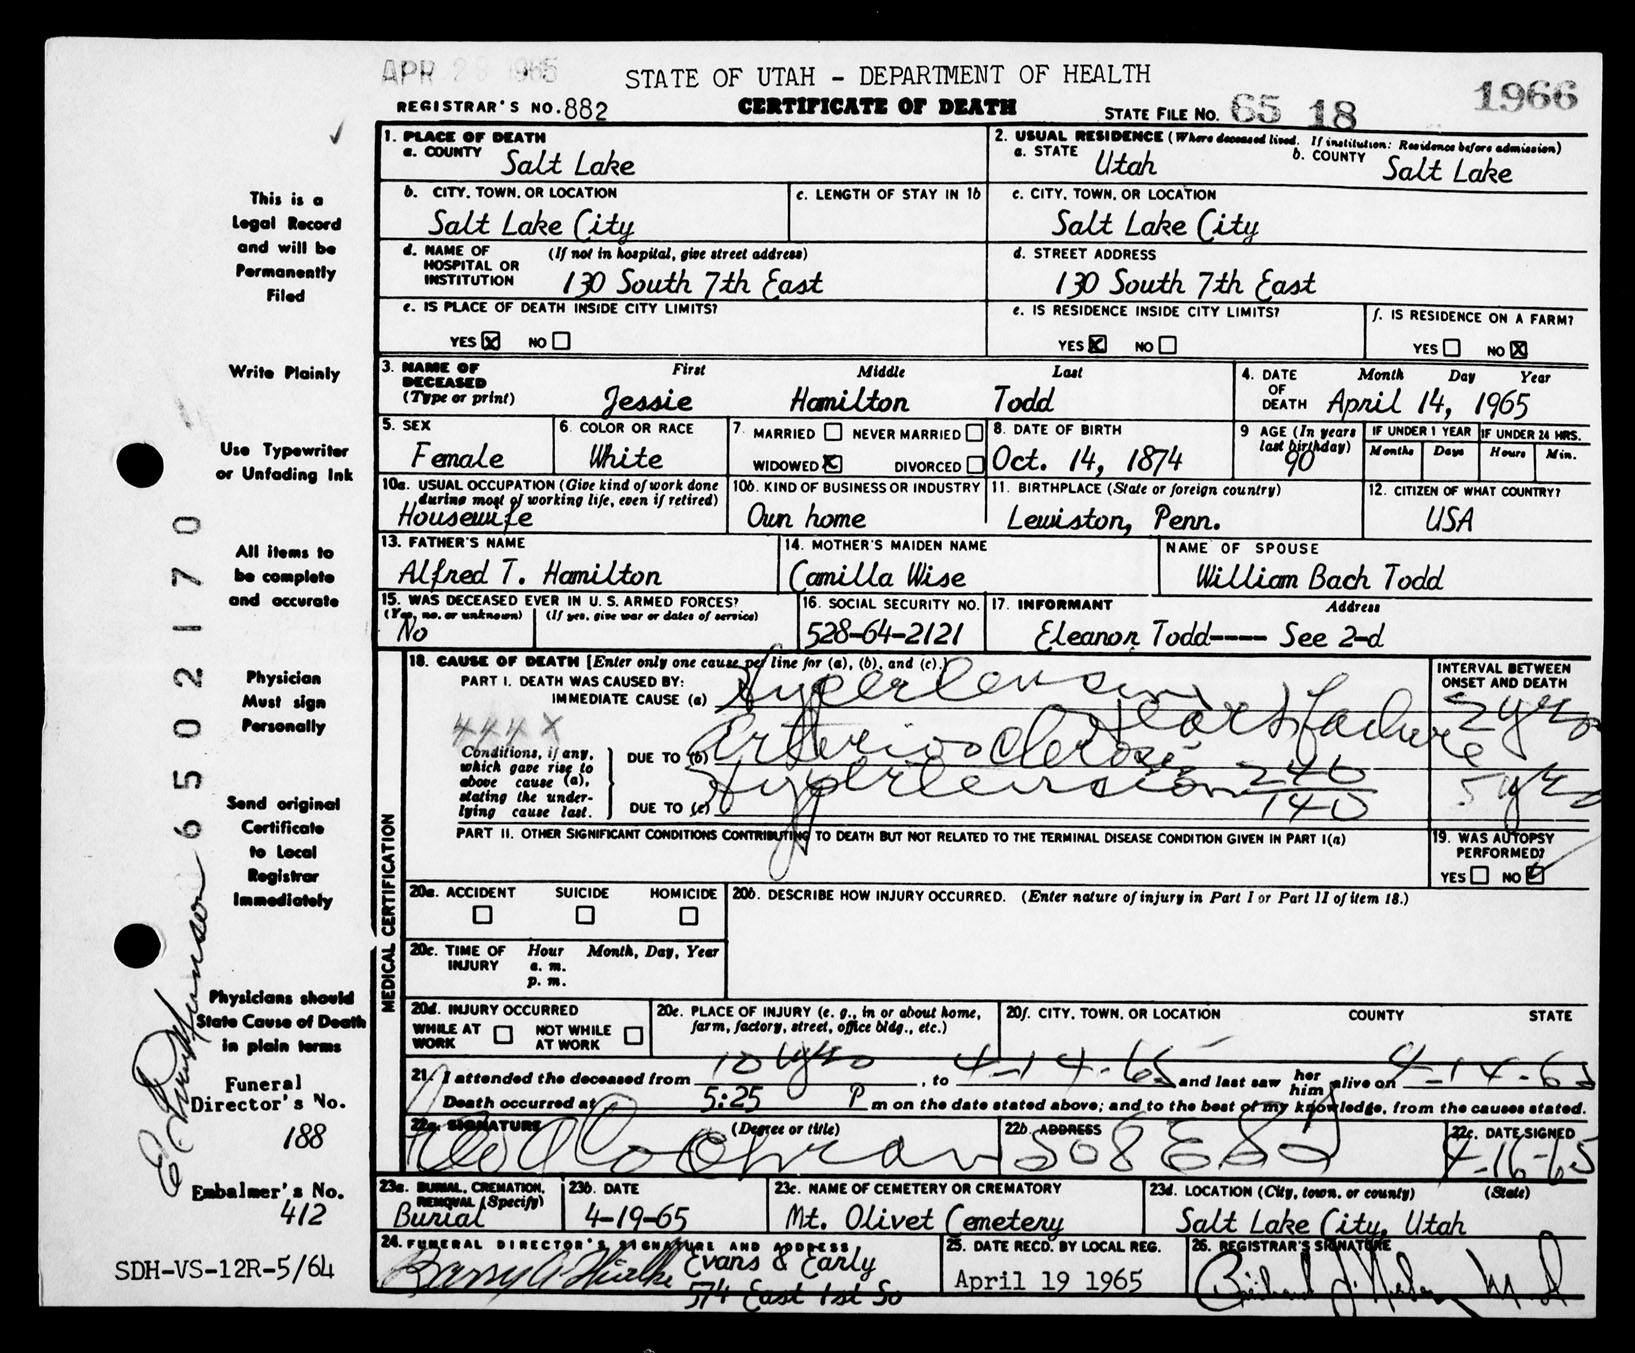 APR 29 1965
STATE OF UTAH - DEPARTMENT OF HEALTH
1966
REGISTRAR'S NO. 882
CERTIFICATE OF DEATH
STATE FILE NO. 65 18
This is a
Legal Record
and will be
Permanently
Filed
Write Plainly
Use Typewriter
or Unfading Ink
All items to
be complete
and accurate
Physician
Must sign
Personally
Send original
Certificate
to Local
Registrar
Immediately
Physicians should
State Cause of Death
in plain terms
Funeral
Director's No.
188
Embalmer's No.
412
SDH-VS-12R-5/64
6502170
1. PLACE OF DEATH
a. COUNTY Salt Lake
2. USUAL RESIDENCE (Where deceased lived. If institution: Residence before admission)
a. STATE Utah b. COUNTY Salt Lake
b. CITY, TOWN, OR LOCATION
Salt Lake City
c. LENGTH OF STAY IN 1b
c. CITY, TOWN, OR LOCATION
Salt Lake City
d. NAME OF HOSPITAL OR INSTITUTION (If not in hospital, give street address)
130 South 7th East
d. STREET ADDRESS
130 South 7th East
e. IS PLACE OF DEATH INSIDE CITY LIMITS?
YES X NO
e. IS RESIDENCE INSIDE CITY LIMITS?
YES X NO
f. IS RESIDENCE ON A FARM?
YES NO X
3. NAME OF DECEASED (Type or print)
First Middle Last
Jessie Hamilton Todd
4. DATE OF DEATH Month Day Year
April 14, 1965
5. SEX
Female
6. COLOR OR RACE
White
7. MARRIED NEVER MARRIED
WIDOWED X DIVORCED
8. DATE OF BIRTH
Oct. 14, 1874
9 AGE (In years last birthday)
90
IF UNDER 1 YEAR
Months Days
IF UNDER 24 HRS.
Hours Min.
10a. USUAL OCCUPATION (Give kind of work done during most of working life, even if retired)
Housewife
10b. KIND OF BUSINESS OR INDUSTRY
Own home
11. BIRTHPLACE (State or foreign country)
Lewiston, Penn.
12. CITIZEN OF WHAT COUNTRY?
USA
13. FATHER'S NAME
Alfred T. Hamilton
14. MOTHER'S MAIDEN NAME
Camilla Wise
NAME OF SPOUSE
William Bach Todd
15. WAS DECEASED EVER IN U. S. ARMED FORCES?
(Yes, no, or unknown) (If yes, give war or dates of service)
No
16. SOCIAL SECURITY NO.
528-64-2121
17. INFORMANT Address
Eleanor Todd---- See 2-d
MEDICAL CERTIFICATION
18. CAUSE OF DEATH [Enter only one cause per line for (a), (b), and (c).]
INTERVAL BETWEEN ONSET AND DEATH
PART I. DEATH WAS CAUSED BY:
IMMEDIATE CAUSE (a) Hypertension Heart failure 2 yrs
444X
Conditions, if any, which gave rise to above cause (a), stating the underlying cause last.
DUE TO (b) Arteriosclerosis
DUE TO (c) Hypertension 240/140 5 yrs
PART II. OTHER SIGNIFICANT CONDITIONS CONTRIBUTING TO DEATH BUT NOT RELATED TO THE TERMINAL DISEASE CONDITION GIVEN IN PART I(a)
19. WAS AUTOPSY PERFORMED?
YES NO
20a. ACCIDENT SUICIDE HOMICIDE
20b. DESCRIBE HOW INJURY OCCURRED. (Enter nature of injury in Part I or Part II of item 18.)
20c. TIME OF INJURY Hour Month, Day, Year
a. m.
p. m.
20d. INJURY OCCURRED
WHILE AT WORK NOT WHILE AT WORK
20e. PLACE OF INJURY (e. g., in or about home, farm, factory, street, office bldg., etc.)
20f. CITY, TOWN, OR LOCATION COUNTY STATE
21. I attended the deceased from 10 yrs, to 4-14-65 and last saw her him alive on 4-14-65
Death occurred at 5:25 P m on the date stated above; and to the best of my knowledge, from the causes stated.
22a. SIGNATURE (Degree or title)
Cochran
22b. ADDRESS
508 E
22c. DATE SIGNED
4-16-65
23a. BURIAL, CREMATION, REMOVAL (Specify)
Burial
23b. DATE
4-19-65
23c. NAME OF CEMETERY OR CREMATORY
Mt. Olivet Cemetery
23d. LOCATION (City, town, or county) (State)
Salt Lake City, Utah
24. FUNERAL DIRECTOR'S SIGNATURE AND ADDRESS
Evans & Early
574 East 1st So
25. DATE RECD. BY LOCAL REG.
April 19 1965
26. REGISTRAR'S SIGNATURE